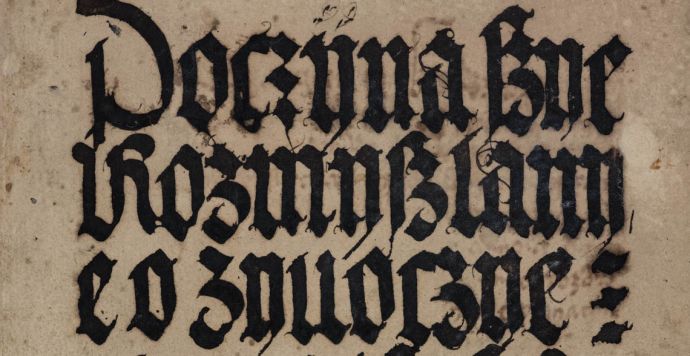 Poczyna ßye
Rozmyßlany
e o zyuoczye =